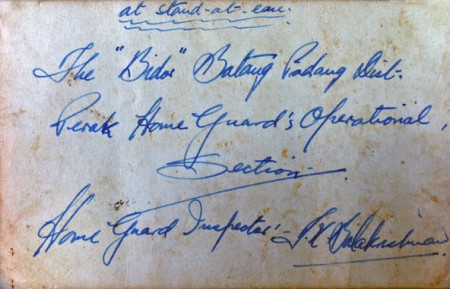 at stand-at-ease.
The "Bidor" Batang Padang Dist.
Perak Home Guard's Operational,
Section.
Home Guard Inspector:- Balakrishnan